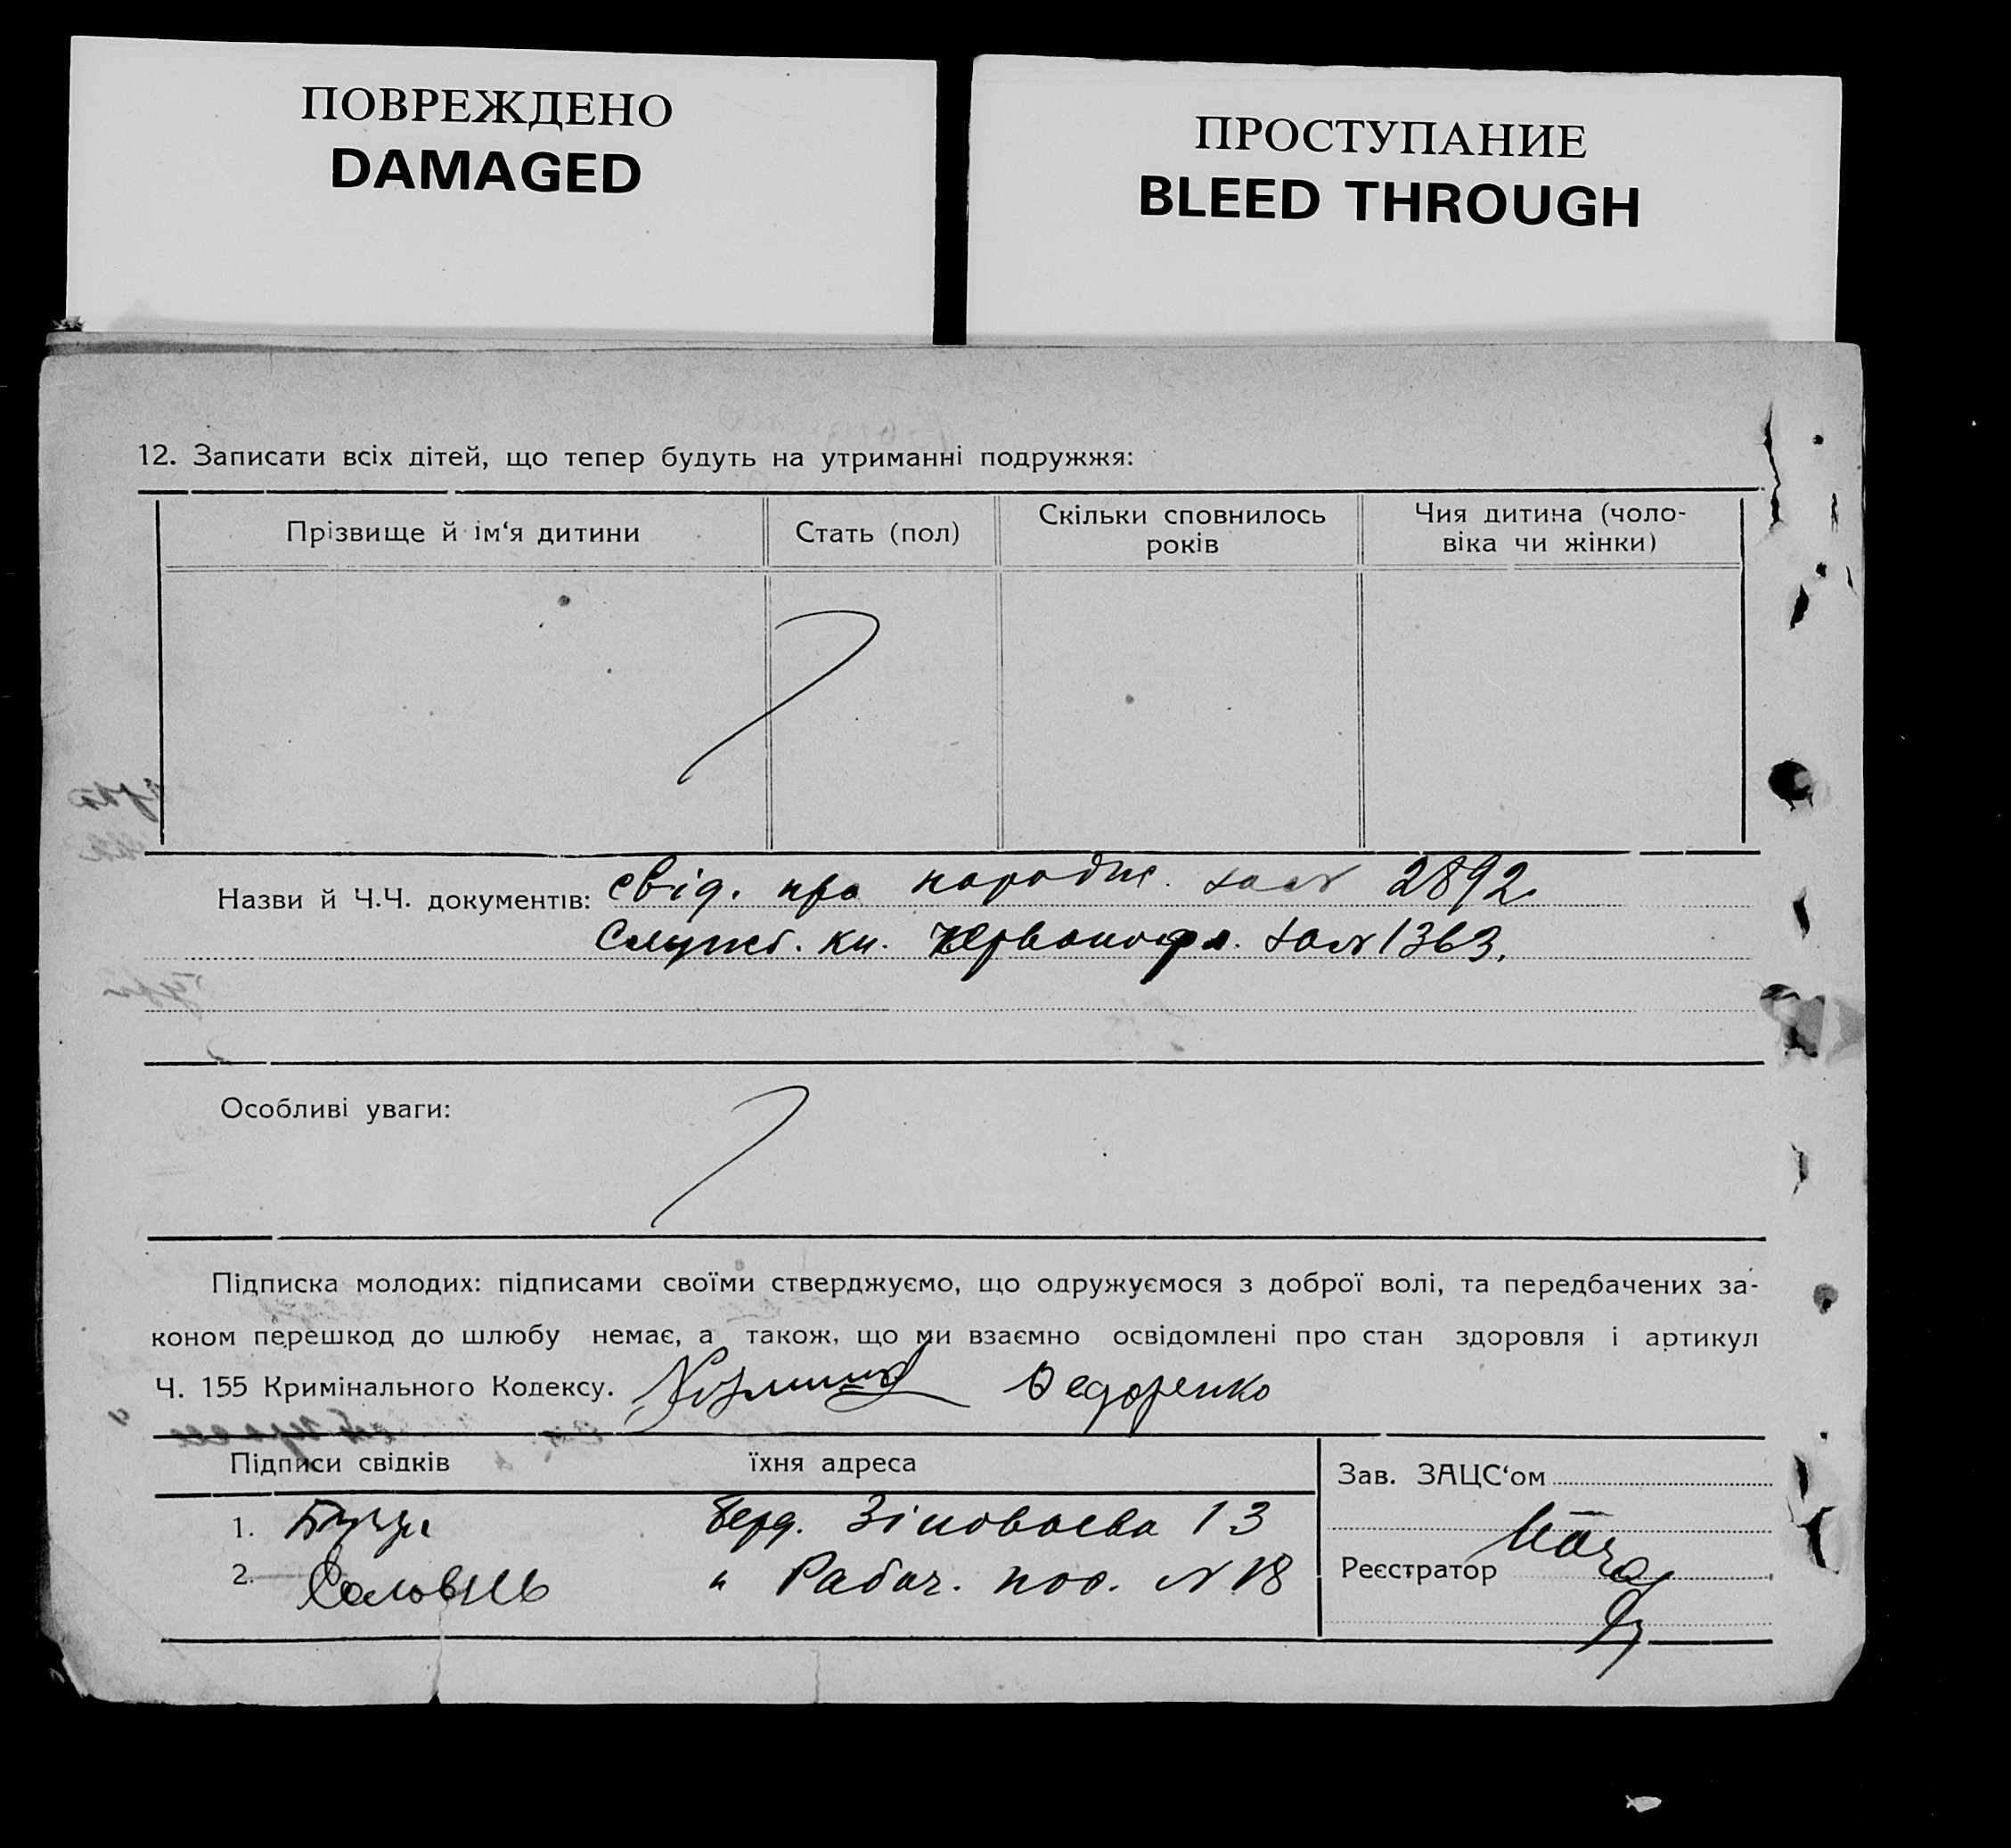 ПОВРЕЖДЕНО
DAMAGED
ПРОСТУПАНИЕ
BLEED THROUGH
12. Записати всіх дітей, що тепер будуть на утриманні подружжя:
Прізвище й ім‘я дитини
Стать (пол)
Скільки сповнилось
років
Чия дитина (чоло-
віка чи жінки)
Назви й Ч.Ч. документів: свід. про народж. за № 2892.
Служб. кн. за № 1363.
Особливі уваги:
Підписка молодих: підписами своїми стверджуємо, що одружуємося з доброї волі, та передбачених за-
коном перешкод до шлюбу немає, а також, що ми взаємно освідомлені про стан здоровля і артикул
Ч. 155 Кримінального Кодексу. Федоренко
Підписи свідків їхня адреса
1. Берд. Зіновьева 13
2. Соловей " Рабоч. пос. № 18
Зав. ЗАЦС‘ом
Реєстратор